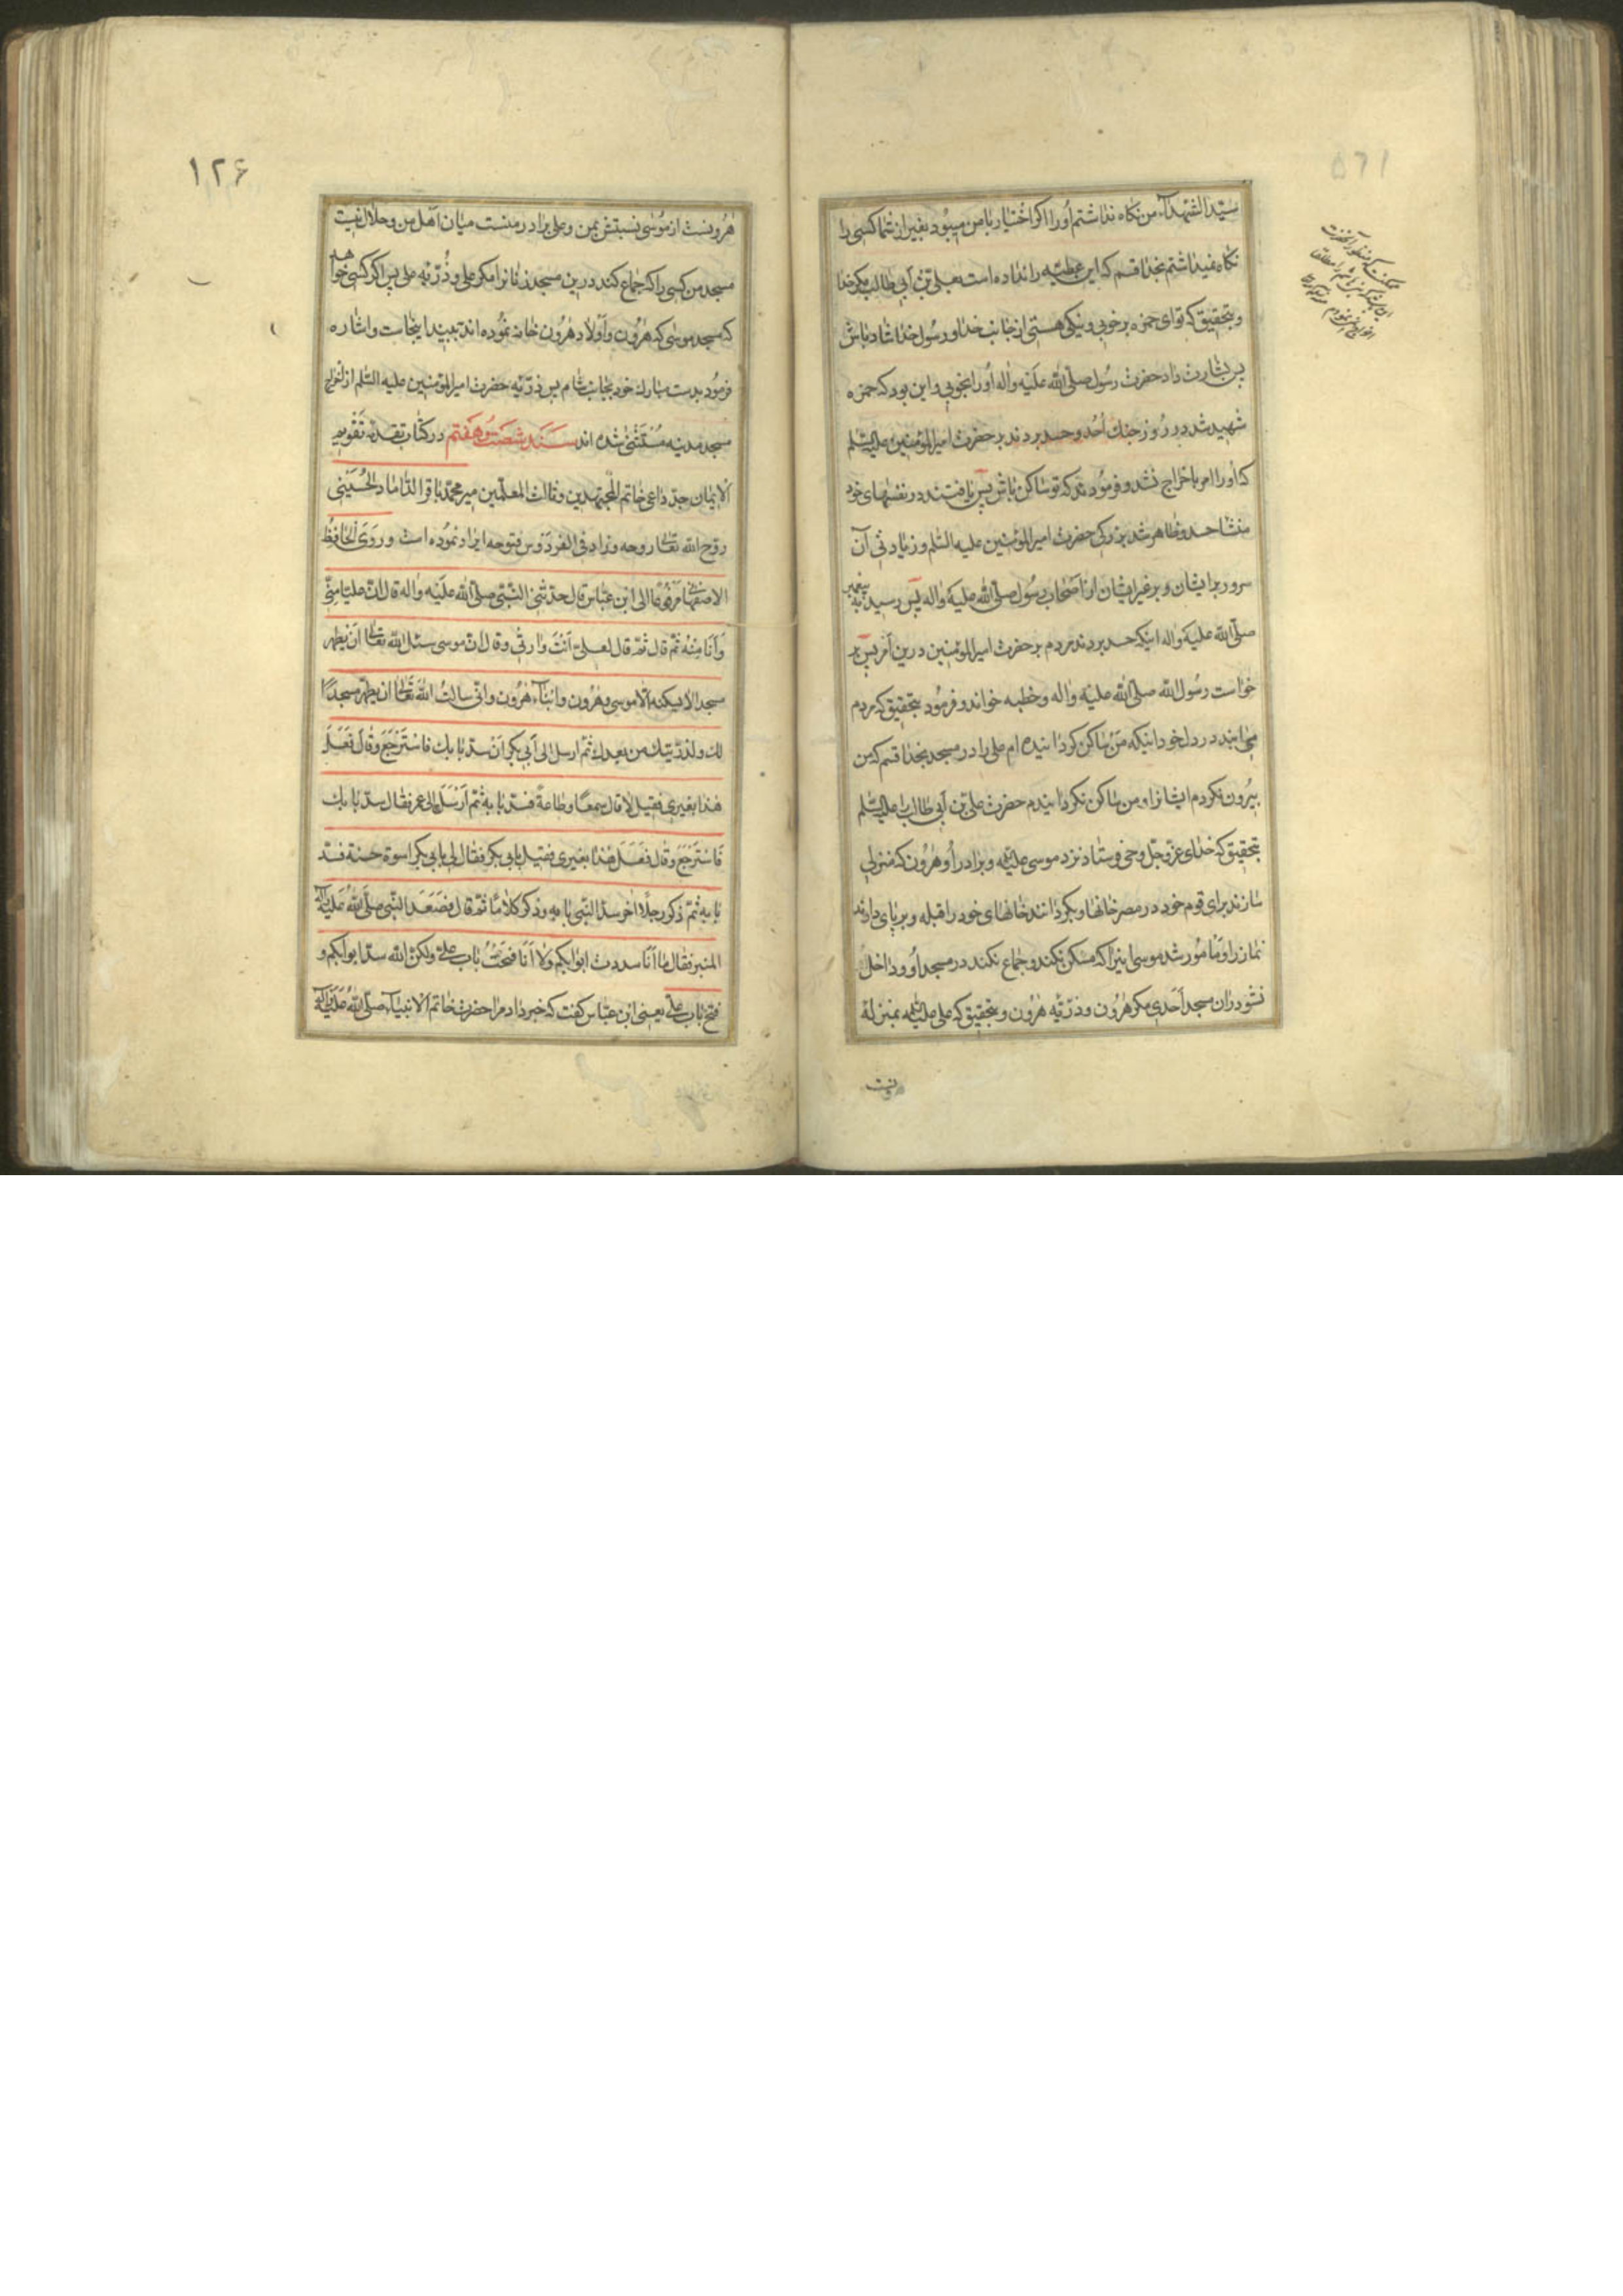 سیّد الشّهدآء من نكاه نداشتم اُو را اكر اختیار با من میبُود بغیر از شما كسی را
نكاه نمیداشتم بخدا قسم كه این عطیّه را نداده است بعلیّ بن أبی طالب مكر خدا
و بتحقیق كه تو ای حمزه بر خوبی و نیكی هستی از جانب خدا و رسُول خدا شاد باش
پس بشارت داد حضرت رسُول صلّی اللّه علَیه واٰله اُو را بخوبی و این بود كه حمزه
شهید شد در رُوز جنك اُحُد و حسد بردند بر حضرت امیرالمؤمنین علیه السّلم
كه اُو را امر باخراج نشد و فرمُودند كه تو ساكن باش پس یافتند در نفسهای خود
منشاحسد و ظاهر شد بزركی حضرت امیرالمؤمنین علیه السّلم و زیادتی آن
سرور بر ایشان و بر غیر ایشان از اَصْحاب رسُول صلّی اللّه علیهَ واٰله پس رسید به پیغمبر
صلّی اللّه علیهَ واٰله اینكه حسد بردند مردم بر حضرت امیرالمؤمنین در این اَمْر پس بر
خواست رسُول اللّه صلّی اللّه علیهَ واٰله و خطبه خواند و فرمُود بتحقیق كه مردم
مییابند در دل خود اینكه مَنْ ساكن كردانیده ام علی را در مسجد بخدا قسم كه من
بیرُون نكردم ایشانرا و من ساكن نكردانیدم حضرت علیّ بن اَبی طالب علیه السّلم
بتحقیق كه خدای عزّ وجلّ وحی فرستاد نزد موسی علیه السّلم و برادر اُو هرُون كه منزل
سازند برای قوم خود در مصر خانها و بكردانند خانهای خود را قبله و برپای دارند
نماز را و مَأمُور شد موسی اینرا كه مسكن نكند و جماع نكند در مسجد اُو و داخل
نشود در ان مسجد اَحَدی مكر هٰرُون و ذرّیّه هٰرُون و بتحقیق كه علی علیه السّلم بمنزلهٔ
رونست
۱۲۶
هٰرُونست از مُوسٰی نسبتش بمن و علی برادر منست میان اَهل من و حلال نیست
مسجد من كسی را كه جماع كند در ین مسجد زنانرا مكر علی و ذُرّیّه علی پس اكر كسی خواهد
كه مسجد موسٰی كه هٰرُون و اَوْلاد هٰرُون خانه نمُوده اند ببیند اینجاست و اشاره
فرمُود بدست مبارك خود بجانب شام پس ذرّیّه حضرت امیرالمؤمنین علیه السّلم از اخراج
مسجد مدینه مُسْتَثْنٰی شده اند سَنَد شصَت و هَفتم در كتاب تقدمه تَقْویم
اْلایمان جدّ داعی خاتم المجتهدین و ثالث المعلّمین میر محمّد باقر الدّاماد الحُسَیْنی
روّح اللّه تعٰالی روحه و زاد فی الفردَوس فتوحه ایراد نمُوده است و رَوَی اْلحافِظُ
الاصفهانی مَرْفُوعًا الی ابن عبّاس قال حدّثنی النّبّی صلّی اللّه علَیْه واٰله قال انّ علیّا مِنّی
وَاَنَا مِنْهُ ثمّ قال ثمّ قال لعلیّ اَنْتَ وٰارثی وقال انّ موسی سئل اللّه تعٰالی اَنْ یطهر
مسجدا لا یسكنه الّا موسی وهٰرُون وابناۤء هٰرُون وانّی سالتُ اللّهَ تَعٰالٰی ان یطهّر مسجدًا
لك ولذرّیّتك من بعدك ثمّ ارسل الی اَبی بكر اَنْ سدّ بابك فاسْتَرْجَعَ وقٰالَ فَعَلَ
هٰذا بغیری فقیل لا قال سمعًا وطاعةً فسدّ بابه ثمّ اَرْسَلَ الی عمر فقال سدّ بابك
فاسْتَرْجَعَ وقٰال فَعَلَ هٰذا بغیری فقیل بابی بكر فقال لی بابی بكر اسوة حسنة فسدّ
بابه ثمّ ذكر رجلًا اٰخر سدّ النّبی بابه وذكر كلامًا ثمّ قال فصَعَدَ النّبی صلّی اللّهُ عَلَیْه واٰله
المنبر فقال ما اَنَا سددت ابوابكم ولاٰ اَنَا فتحْتُ باب علیّ ولكنّ اللّه سدّ ابوابكم و
فتح باب علیّ یعنی ابن عبّاس كفت كه خبر داد مرا حضرت خاتم اْلانبیاۤء صلّی اللّهُ عَلَیْه واٰله